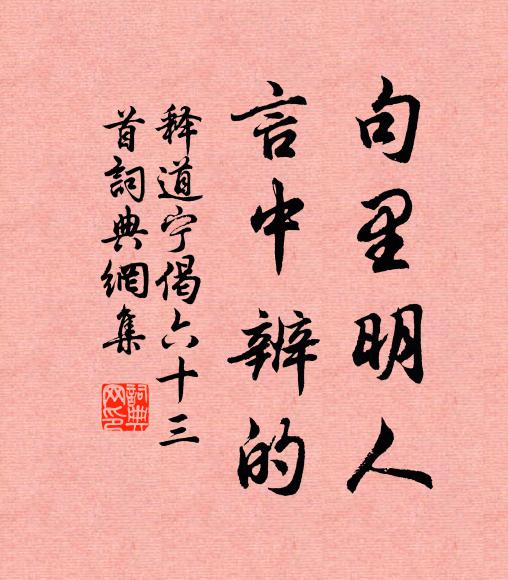 句里明人
言中辨的
释道宁偈六十三
首詞典網集
詞典网印